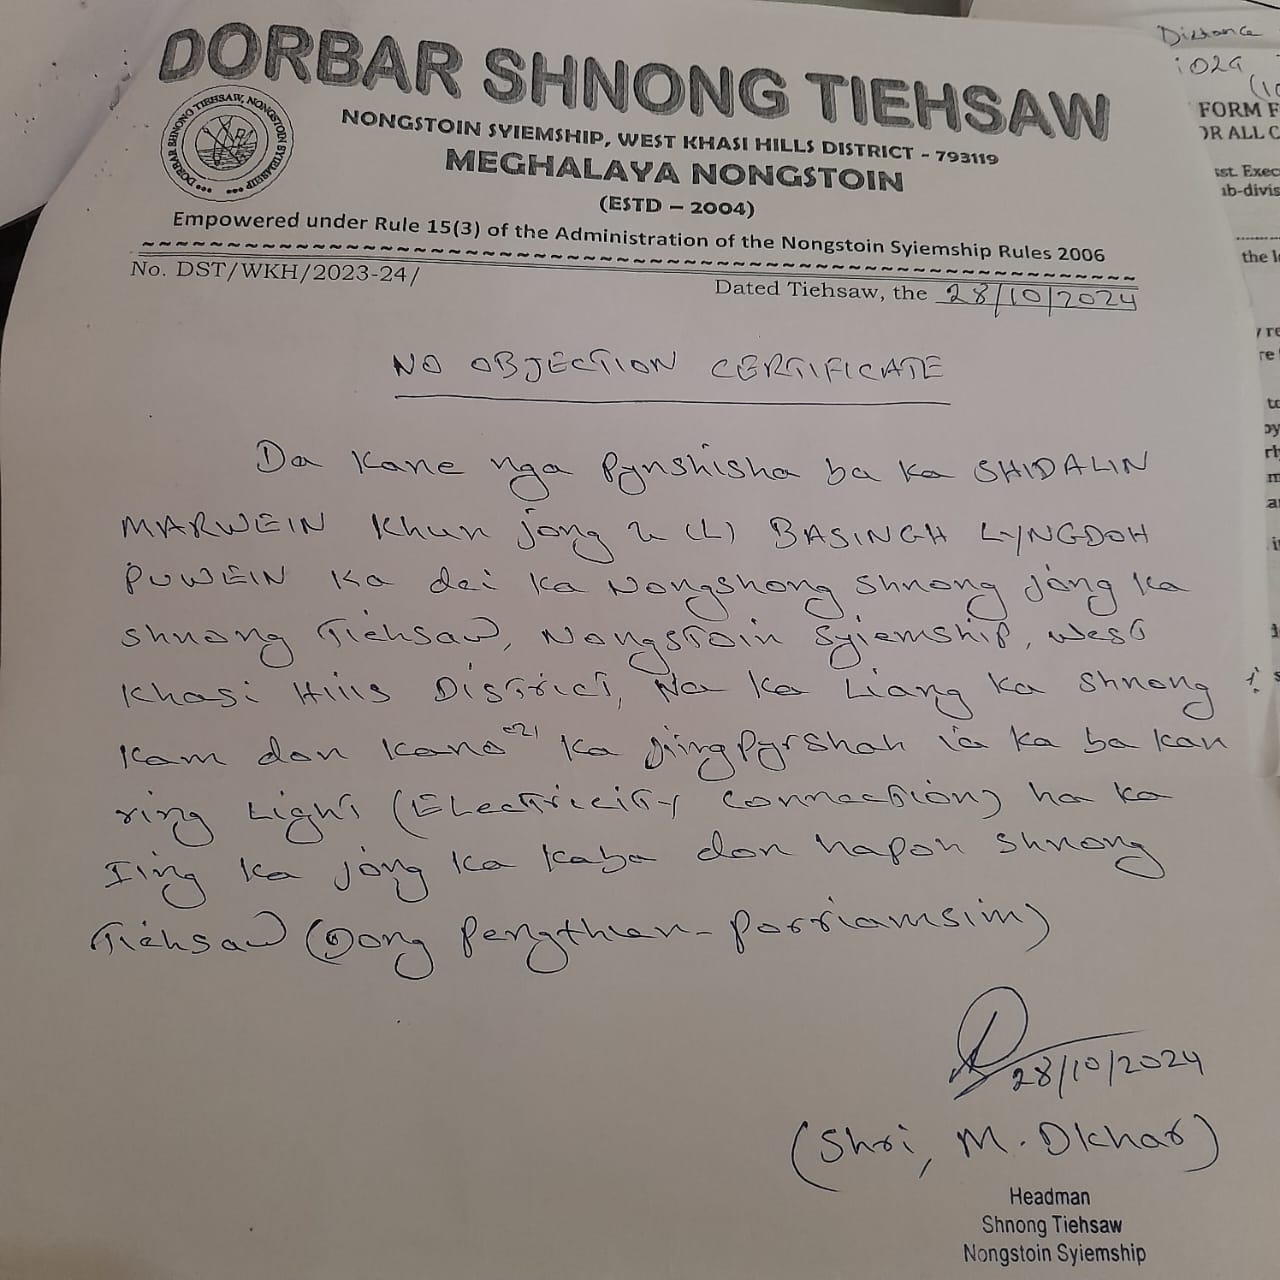 DORBAR SHNONG TIEHSAW
DORBAR SHNONG TIEHSAW, NONGSTOIN SYIEMSHIP
NONGSTOIN SYIEMSHIP, WEST KHASI HILLS DISTRICT - 793119
MEGHALAYA NONGSTOIN
(ESTD – 2004)
Empowered under Rule 15(3) of the Administration of the Nongstoin Syiemship Rules 2006
No. DST/WKH/2023-24/
Dated Tiehsaw, the 28/10/2024
NO OBJECTION CERTIFICATE
Da Kane nga Pynshisha ba ka SHIDALIN
MARWEIN Khun jong u (L) BASINGH LYNGDOH
PUWEIN Ka dei ka Nongshong Shnong jong ka
shnong Tiehsaw, Nongstoin Syiemship, West
Khasi Hills District, Na ka Liang ka Shnong
Kam don kano Ka jingpyrshah ïa ka ba kan
ring Light (Electricity connection) ha ka
Iing ka jong ka kaba don hapoh Shnong
Tiehsaw (Dong Pengthlen - Porriamsim)
28/10/2024
(Shri, M. Dkhar)
Headman
Shnong Tiehsaw
Nongstoin Syiemship
Distance
FORM F
OR ALL C
sst. Exec
ub-divis
the l